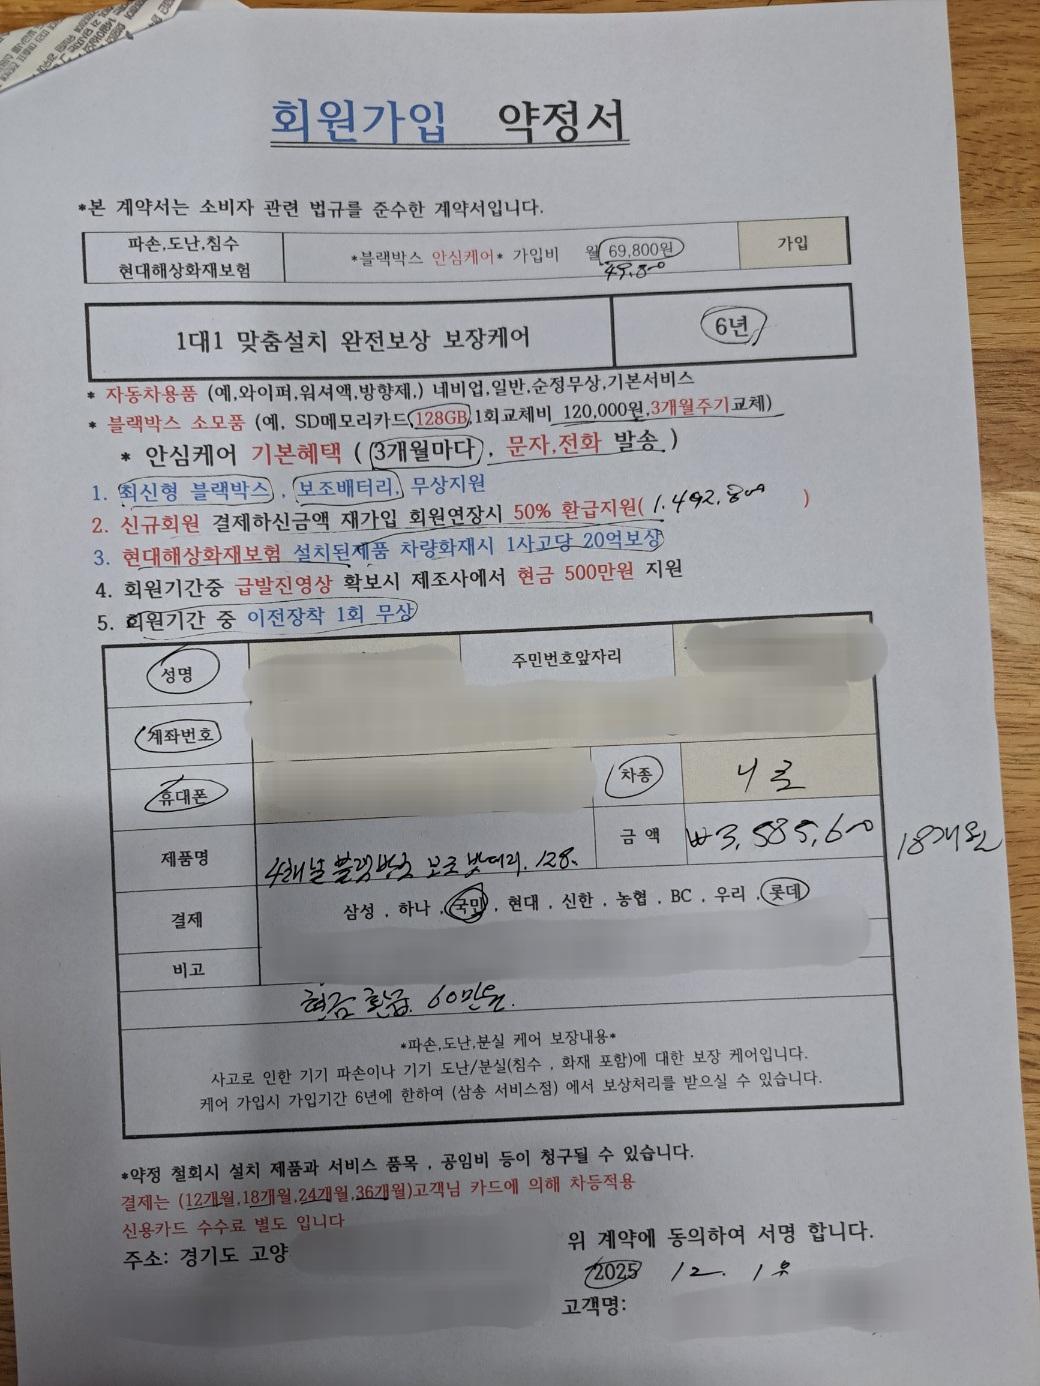 회원가입 약정서
*본 계약서는 소비자 관련 법규를 준수한 계약서입니다.
파손,도난,침수
현대해상화재보험
*블랙박스 안심케어* 가입비 월 69,800원
49,800
가입
1대1 맞춤설치 완전보상 보장케어
6년
* 자동차용품 (예,와이퍼,워셔액,방향제,) 네비업,일반,순정무상,기본서비스
* 블랙박스 소모품 (예, SD메모리카드 128GB,1회교체비 120,000원,3개월주기교체)
* 안심케어 기본혜택 (3개월마다, 문자,전화 발송)
1. 최신형 블랙박스, 보조배터리, 무상지원
2. 신규회원 결제하신금액 재가입 회원연장시 50% 환급지원( 1.492.800 )
3. 현대해상화재보험 설치된제품 차량화재시 1사고당 20억보상
4. 회원기간중 급발진영상 확보시 제조사에서 현금 500만원 지원
5. 회원기간 중 이전장착 1회 무상
성명
주민번호앞자리
계좌번호
휴대폰
차종
니로
제품명
4채널 블랙박스 보조밧데리. 128.
금 액
₩3,585,600
18개월
결제
삼성 , 하나 , 국민 , 현대 , 신한 , 농협 , BC , 우리 , 롯데
비고
현금 환급. 60만원.
*파손,도난,분실 케어 보장내용*
사고로 인한 기기 파손이나 기기 도난/분실(침수 , 화재 포함)에 대한 보장 케어입니다.
케어 가입시 가입기간 6년에 한하여 (삼송 서비스점) 에서 보상처리를 받으실 수 있습니다.
*약정 철회시 설치 제품과 서비스 품목 , 공임비 등이 청구될 수 있습니다.
결제는 (12개월,18개월,24개월,36개월)고객님 카드에 의해 차등적용
신용카드 수수료 별도 입니다
주소: 경기도 고양
위 계약에 동의하여 서명 합니다.
2025 12. 1
고객명: